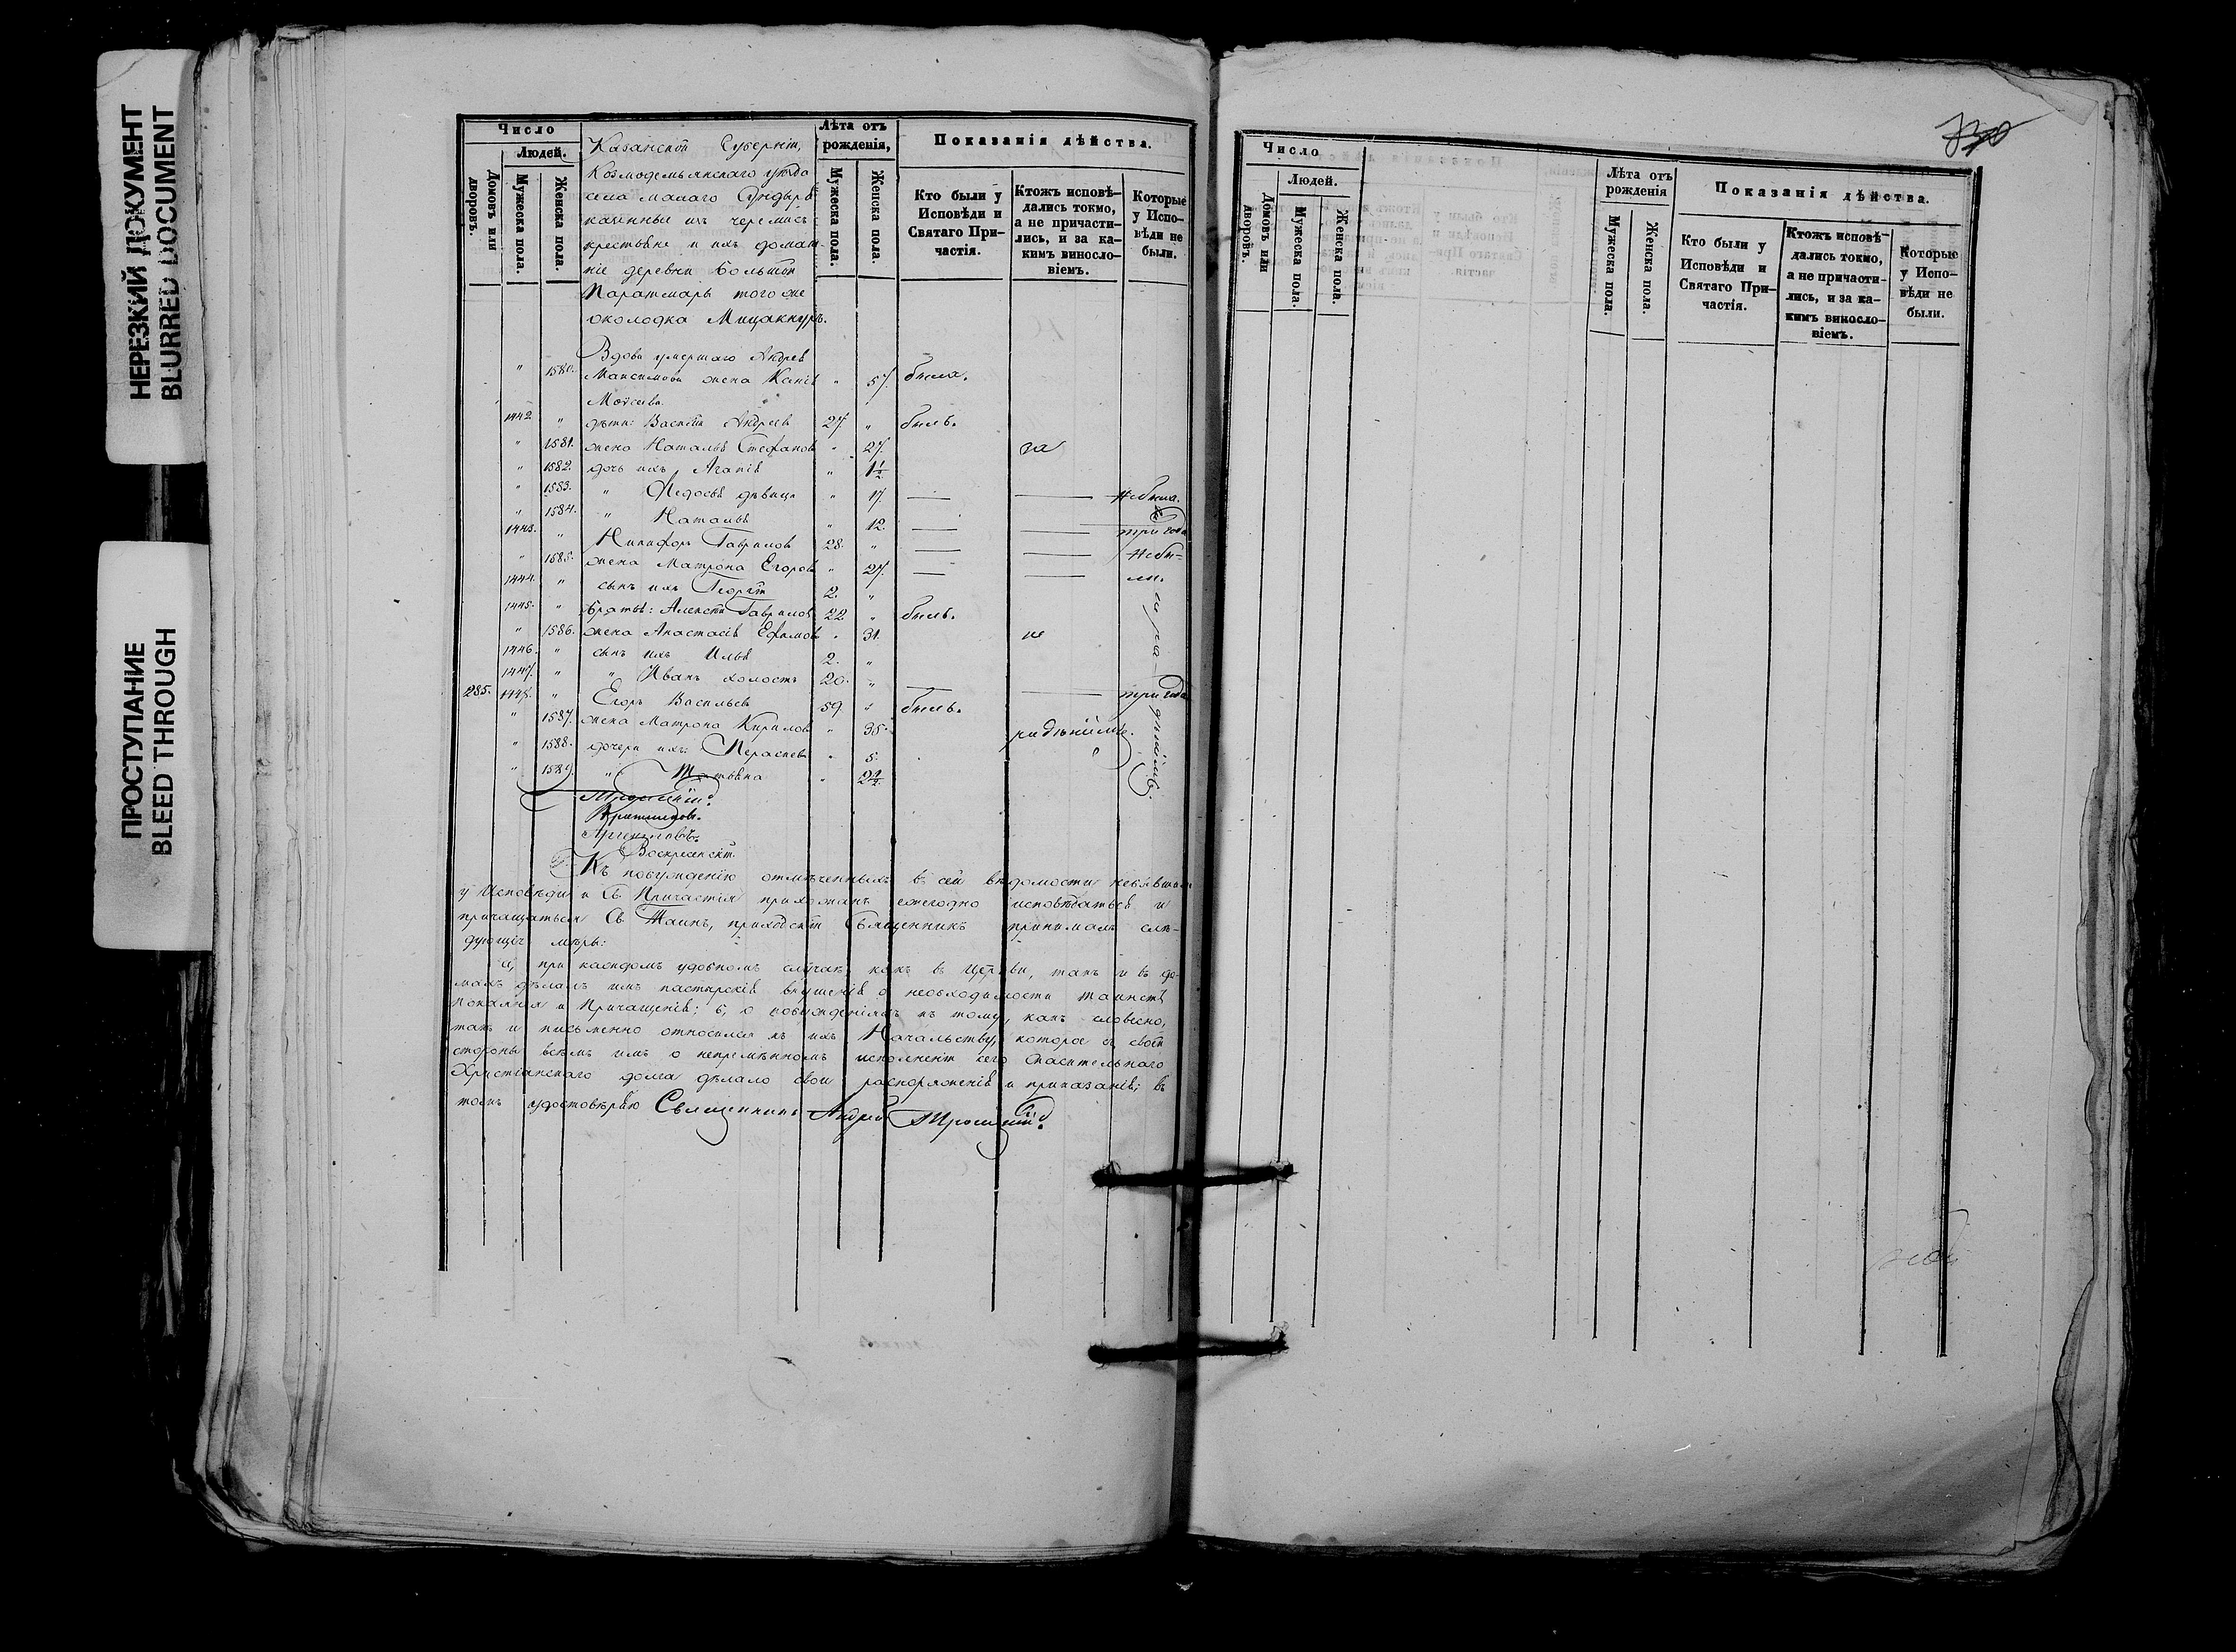 НЕРЕЗКИЙ ДОКУМЕНТ
BLURRED DOCUMENT
ПРОСТУПАНИЕ
BLEED THROUGH
Число
Людей.
Домовъ или дворовъ.
Мужеска пола.
Женска пола.
Казанской Губерніи,
Козмодемьянскаго уѣзда
села малаго Сундыря
изъ черемисъ
крестьяне и ихъ домаш-
ніе деревни Большой
Паратмаръ того же
околодка
Лѣта отъ рожденія,
Мужеска пола.
Женска пола.
Показанія дѣйства.
Кто были у Исповѣди и Святаго При-частія.
Ктожъ исповѣ-дались токмо, а не причасти-лись, и за ка-кимъ винословіемъ.
Которые у Испо-вѣди не были.
Вдова умершаго Андрея
1580. Максимова жена Ксенія " 57 была.
Моѵсеева
1442 " дѣти: Василій Андреевъ 27 " былъ.
" 1581. жена Наталья Стефанова " 27.
" 1582. дочь ихъ Агапія " 1½
" 1583. " Ѳедосья дѣвица " 17 — — Небыла.
" 1584. " Наталья " 12. — —
1443. " Никифоръ Гавриловъ 28. " — — три года
" 1585. жена Матрона Егорова " 27. — — Небы-
1444. " сынъ ихъ Георгій 2. " ли.
1445. " братья: Алексѣй Гавриловъ 22 " былъ.
" 1586. жена Анастасія Ефимова " 31.
1446. " сынъ ихъ Илья 2. "
1447. " " Иванъ холостъ 20. " — — три года
285. 1448. " Егоръ Васильевъ 59 " былъ.
" 1587. жена Матрона Кирилова " 35.
" 1588. дочери ихъ: " 5.
" 1589. " Татьяна " 2½
Воскресенскій
Къ побужденію отмѣченныхъ въ сей вѣдомости небывшихъ
у Исповѣди и Св. Причастія прихожанъ ежегодно исповѣдаться и
причащаться Св. Таинъ, приходскій Священникъ принималъ слѣ-
дующія мѣры:
а, при каждомъ удобномъ случаѣ, какъ въ Церкви, такъ и въ до-
махъ дѣлалъ имъ пастырскія внушенія о необходимости таинствъ
Покаянія и Причащенія; б, о побужденіи ихъ къ тому, какъ словесно,
такъ и письменно относился къ ихъ Начальству, которое съ своей
стороны всѣмъ имъ о непремѣнномъ исполненіи сего Спасительнаго
Христіанскаго долга дѣлало свои распоряженія и приказанія; въ
томъ удостовѣряю Священникъ Андрей
Число
Людей.
Домовъ или дворовъ.
Мужеска пола.
Женска пола.
Лѣта отъ рожденія
Мужеска пола.
Женска пола.
Показанія дѣйства.
Кто были у Исповѣди и Святаго При-частія.
Ктожъ исповѣ-дались токмо, а не причасти-лись, и за ка-кимъ винословіемъ.
Которые у Испо-вѣди не были.